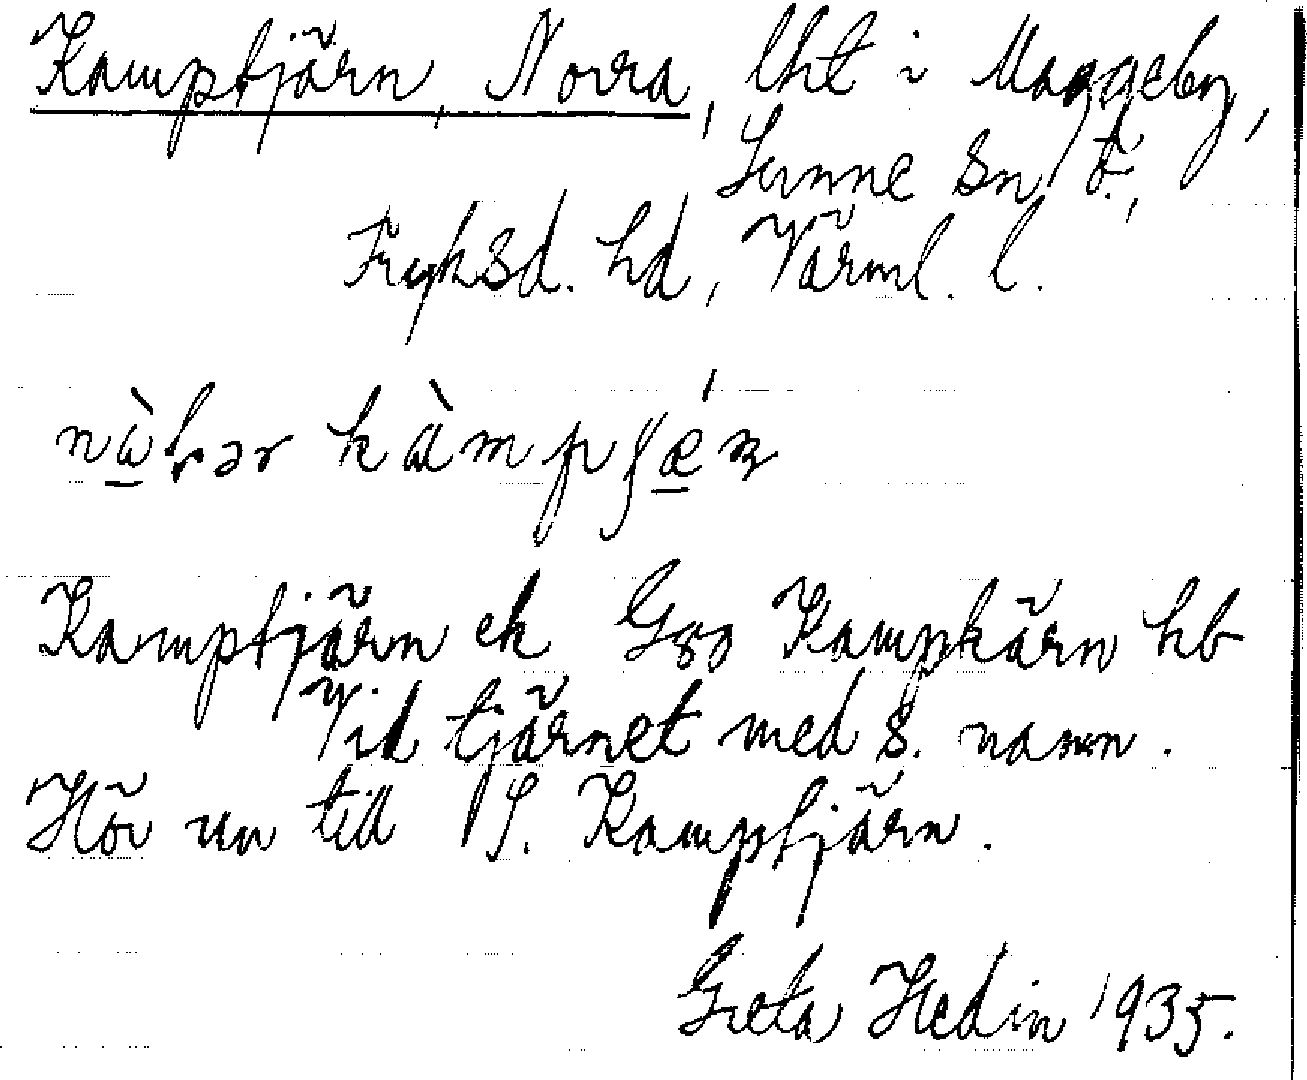 Kamptjärn, Norra, lht i Maggeby,
Sunne sn,
Fryksd. hd, Värml. l.
Kamptjärn ek G80 Kampkärn hb
Vid tjärnet med s. namn.
Hör un till S. Kamptjärn.
Greta Hedin 1935.